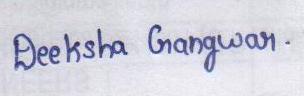 Deeksha Gangwar.